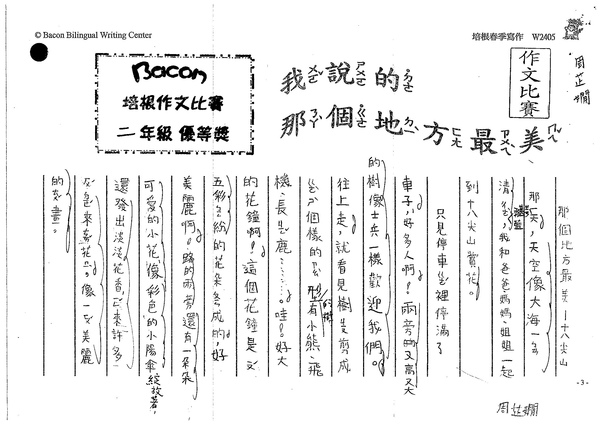 © Bacon Bilingual Writing Center
培根春季寫作 W2405
周芷嫺
作文比賽
Bacon
培根作文比賽
二年級 優等獎
我說的
那個地方最美
那個地方最美—十八尖山
那天,天空像大海一
清澈,我和爸爸媽媽、姐姐一起
到十八尖山賞花。
只見停車ㄔㄤˊ裡停滿了
車子,好多人啊!兩旁的又高又大
的樹像士兵一樣歡迎我們。
往上走,就看見樹ㄓ剪成
個樣的 型有小熊、飛
機、長ㄐㄧㄥˇ鹿……。哇!好大
的花鐘啊!這個花鐘是文
五彩ㄅㄧㄣ紛的花朵多成的,好
美麗啊!路的兩旁還有一朵朵
可愛的小花像彩色的小陽傘綻放著,
還發出淡淡花香,ㄒㄧ來許多
色來 花 。像一文美麗
的 畫。
- 3 -
周芷嫺